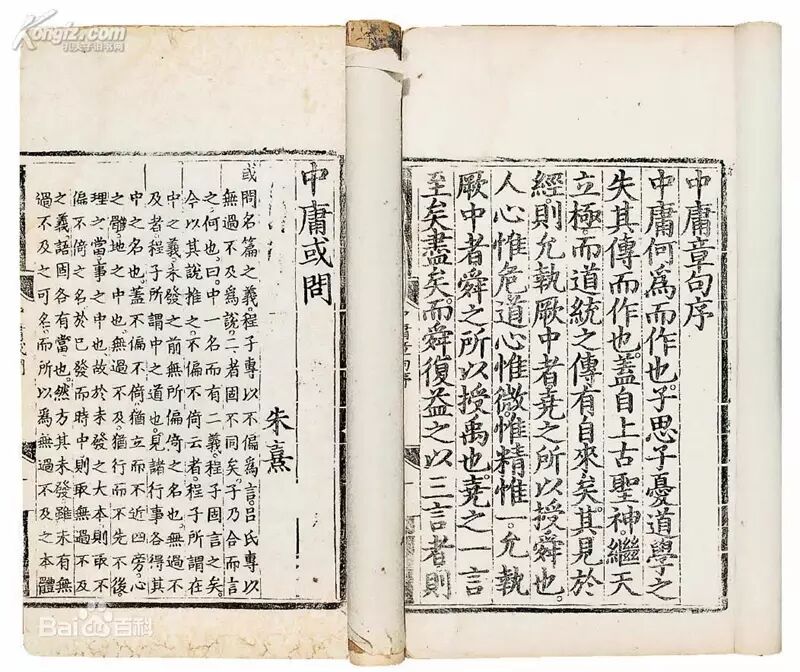 中庸章句序
中庸何爲而作也。子思子憂道學之
失其傳而作也。蓋自上古聖神。繼天
立極。而道統之傳有自來矣。其見於
經。則允執厥中者。堯之所以授舜也。
人心惟危。道心惟微。惟精惟一。允執
厥中者。舜之所以授禹也。堯之一言
至矣盡矣。而舜復益之以三言者則
中庸或問
朱熹
或問名篇之義。程子專以不偏爲言。呂氏專以
無過不及爲說。二者固不同矣。子乃合而言
之何也。曰。中一名而有二義。程子固言之矣。
今以其說推之。不偏不倚云者。程子所謂在
中之義。未發之前無所偏倚之名也。無過不
及者。程子所謂中之道也。見諸行事各得其
中之名也。蓋不偏不倚。猶立而不近四旁。心
之體地之中也。無過不及。猶行而不先不後
理之當事之中也。故於未發之大本。則取不
偏不倚之名。於已發而時中。則取無過不及
之義。語固各有當也。然方其未發。雖未有無
過不及之可名。而所以爲無過不及之本體
Kongfz.com
孔夫子旧书网
Baidu百科